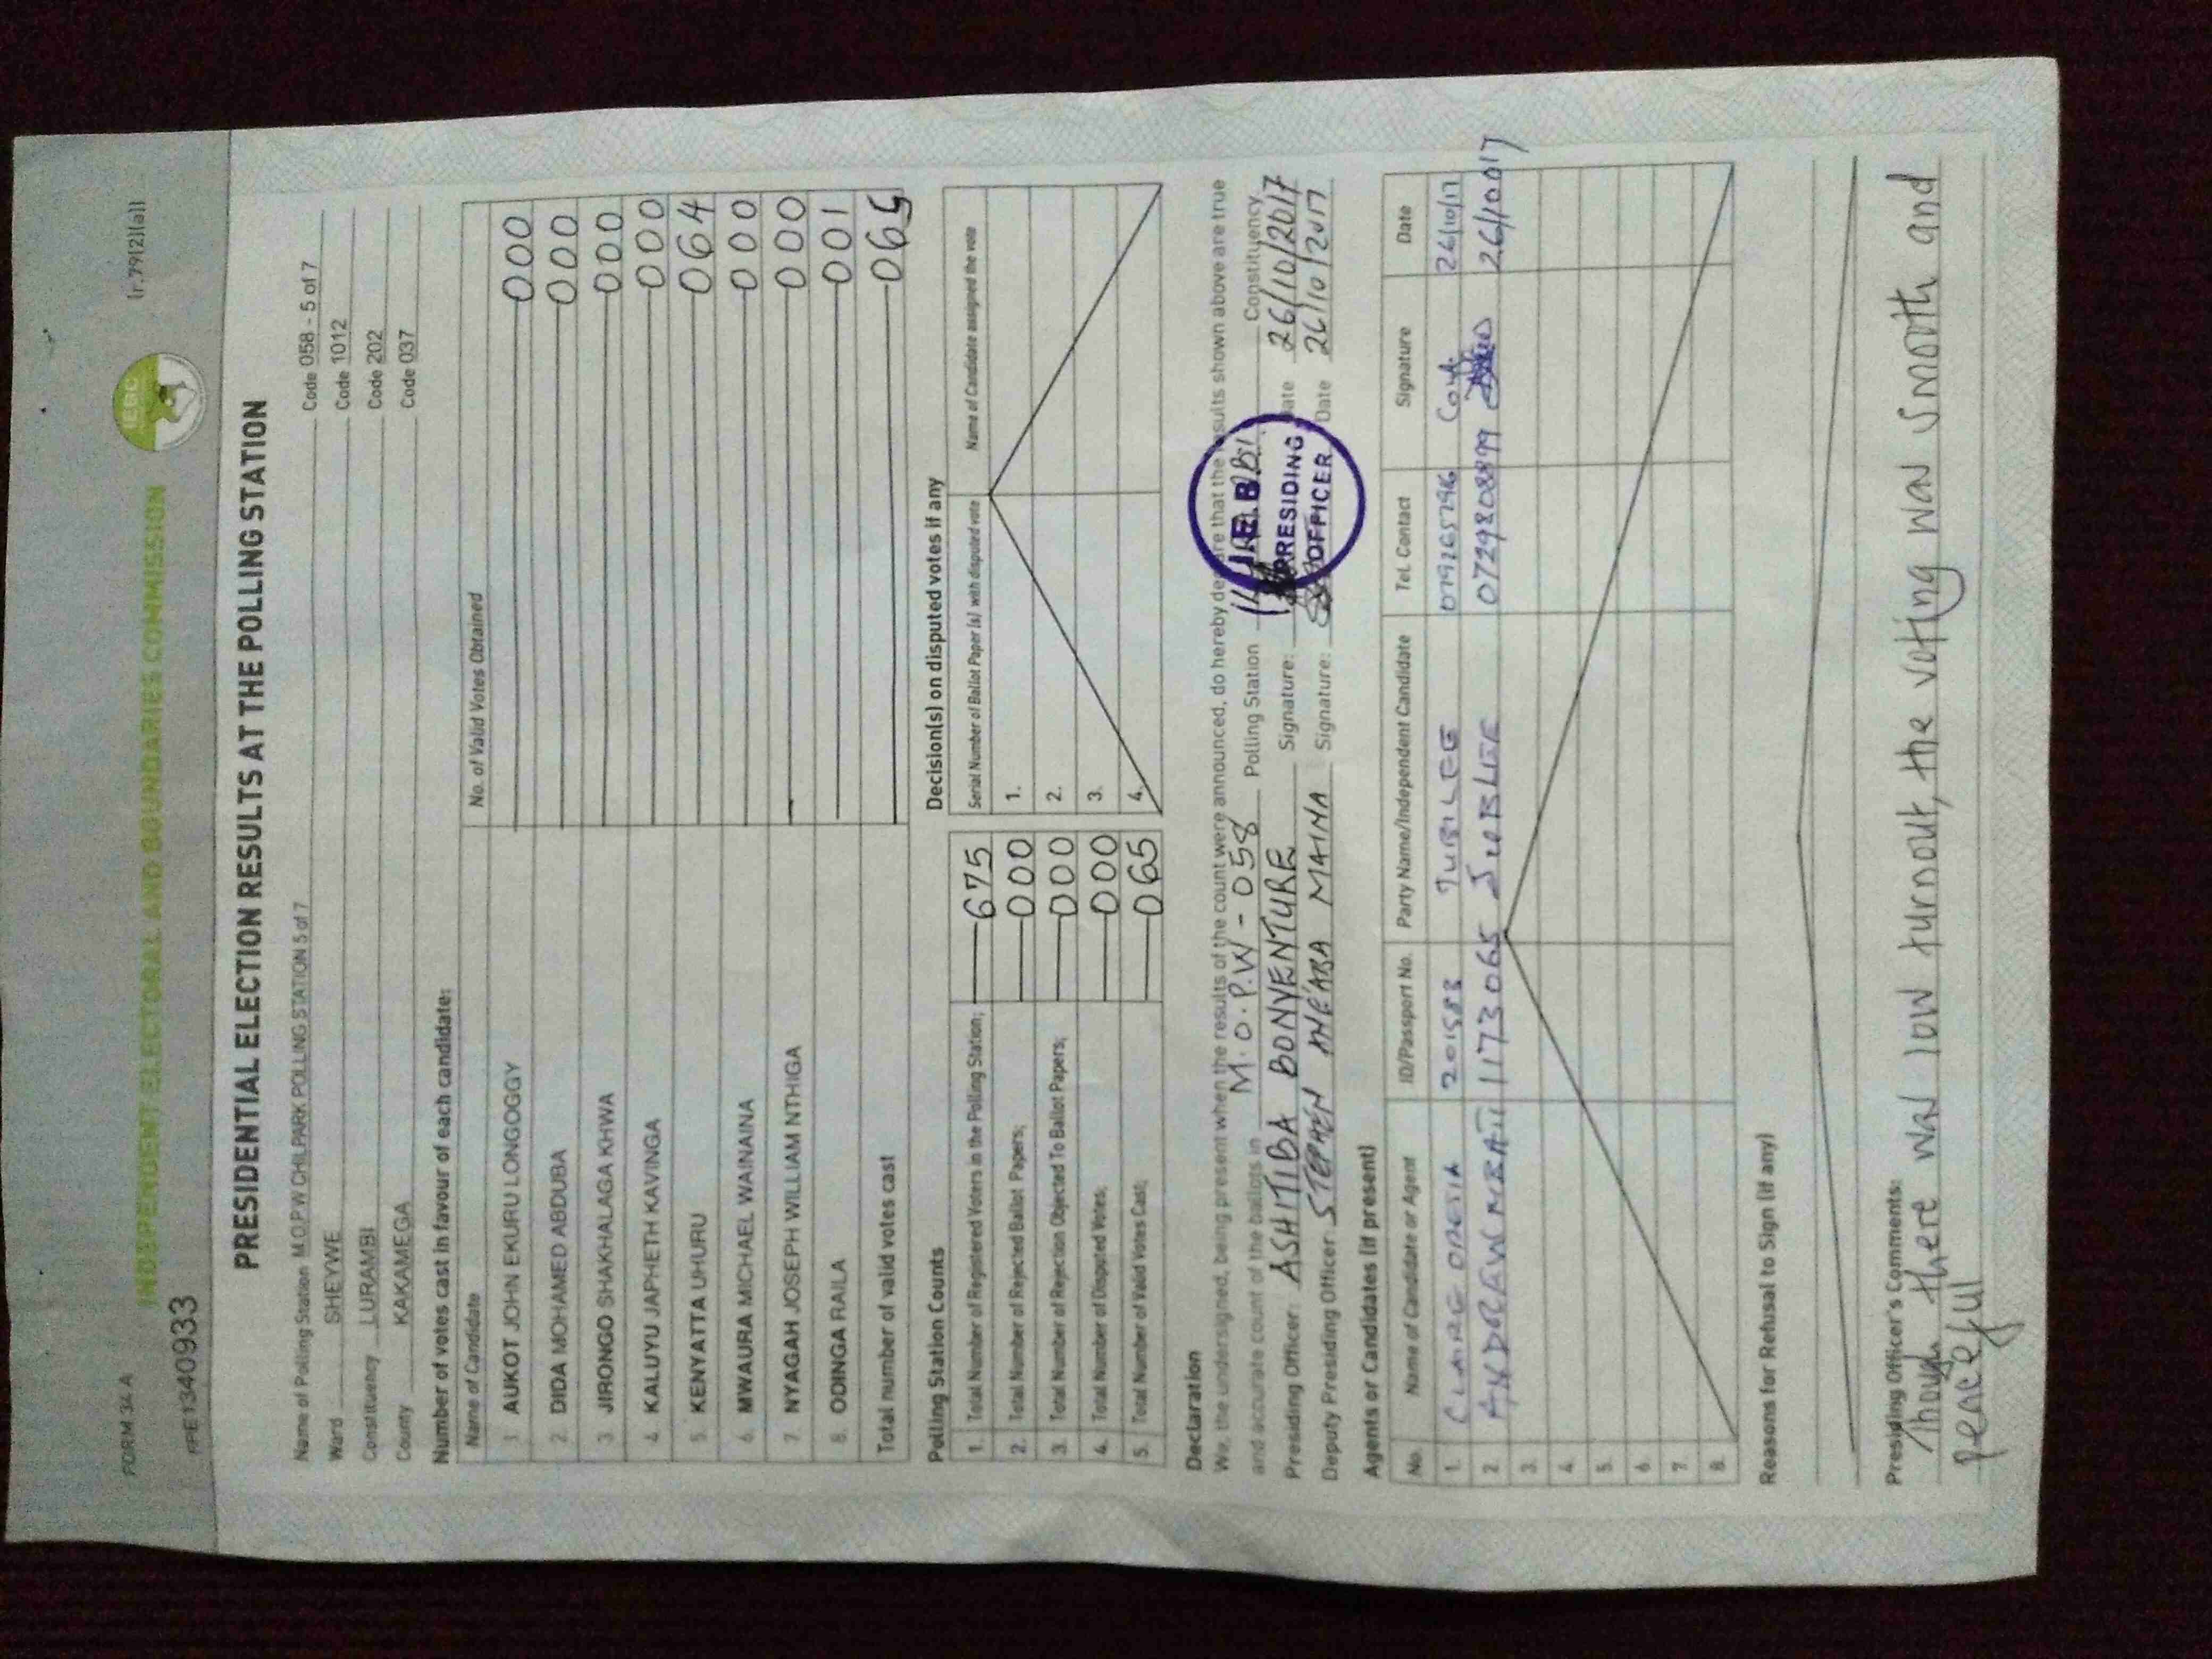 FORM 34 A
(r.79(2)(a))
INDEPENDENT ELECTORAL AND BOUNDARIES COMMISSION
IEBC
PRE1340933
PRESIDENTIAL ELECTION RESULTS AT THE POLLING STATION
Name of Polling Station M.O.P.W CHILPARK POLLING STATION 5 of 7 Code 058 - 5 of 7
Ward SHEYWE Code 1012
Constituency LURAMBI Code 202
County KAKAMEGA Code 037
Number of votes cast in favour of each candidate:
Name of Candidate No. of Valid Votes Obtained
1. AUKOT JOHN EKURU LONGOGGY 000
2. DIDA MOHAMED ABDUBA 000
3. JIRONGO SHAKHALAGA KHWA 000
4. KALUYU JAPHETH KAVINGA 000
5. KENYATTA UHURU 064
6. MWAURA MICHAEL WAINAINA 000
7. NYAGAH JOSEPH WILLIAM NTHIGA 000
8. ODINGA RAILA 001
Total number of valid votes cast 065
Polling Station Counts
1. Total Number of Registered Voters in the Polling Station; 675
2. Total Number of Rejected Ballot Papers; 000
3. Total Number of Rejection Objected To Ballot Papers; 000
4. Total Number of Disputed Votes; 000
5. Total Number of Valid Votes Cast; 065
Decision(s) on disputed votes if any
Serial Number of Ballot Paper (s) with disputed vote Name of Candidate assigned the vote
1.
2.
3.
4.
Declaration
We, the undersigned, being present when the results of the count were announced, do hereby declare that the results shown above are true
and accurate count of the ballots in M.O.P.W - 058 Polling Station Constituency
Presiding Officer: ASHITIBA BONVENTURE Signature: Date 26/10/2017
Deputy Presiding Officer: STEPHEN MAINA Signature: Date 26/10/2017
PRESIDING
OFFICER
Agents or Candidates (if present)
No. Name of Candidate or Agent ID/Passport No. Party Name/Independent Candidate Tel. Contact Signature Date
1. CLAIRE JUBILEE 26/10/17
2. 11173065 JUBLIEE 0729820899 26/10017
3.
4.
5.
6.
7.
8.
Reasons for Refusal to Sign (if any)
Presiding Officer's Comments:
Though there was low turnout, the voting was smooth and
peaceful